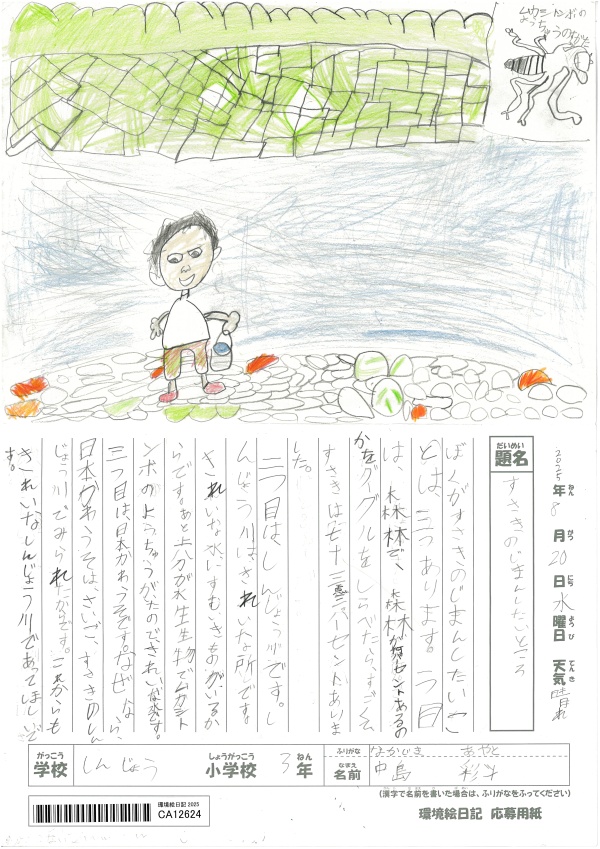 ムカシトンボの
ようちゅうのがた
2025年ねん8月がつ20日にち水曜日ようび 天気てんき晴れ
題名だいめい
すさきのじまんしたいところ
ぼくがすさきのじまんしたいこ
とは、三つあります。一つ目
は、森林で、森林が何パーセントあるの
かをグーグルをしらべたら、すごくて
すさきは七十三パーセントありま
した。
二つ目はしんじょう川です。し
んじょう川はきれいな所です。
きれいな水にすむいきものがいるか
らです。あと上分が水生生物でムカシト
ンボのようちゅうがたのできれいな水です。
三つ目は、日本かわうそです。なぜなら、
日本かわうそは、さいご、すさきのしん
じょう川でみられたがです。これからも
きれいなしんじょう川であってほしいで
す。
学校がっこう しんじょう 小学校しょうがっこう 3年ねん
ふりがな なかじま あやと
名前なまえ 中島 彩斗
(漢字で名前を書いた場合は、ふりがなをふってください)
環境絵日記 2025
CA12624
環境絵日記 応募用紙